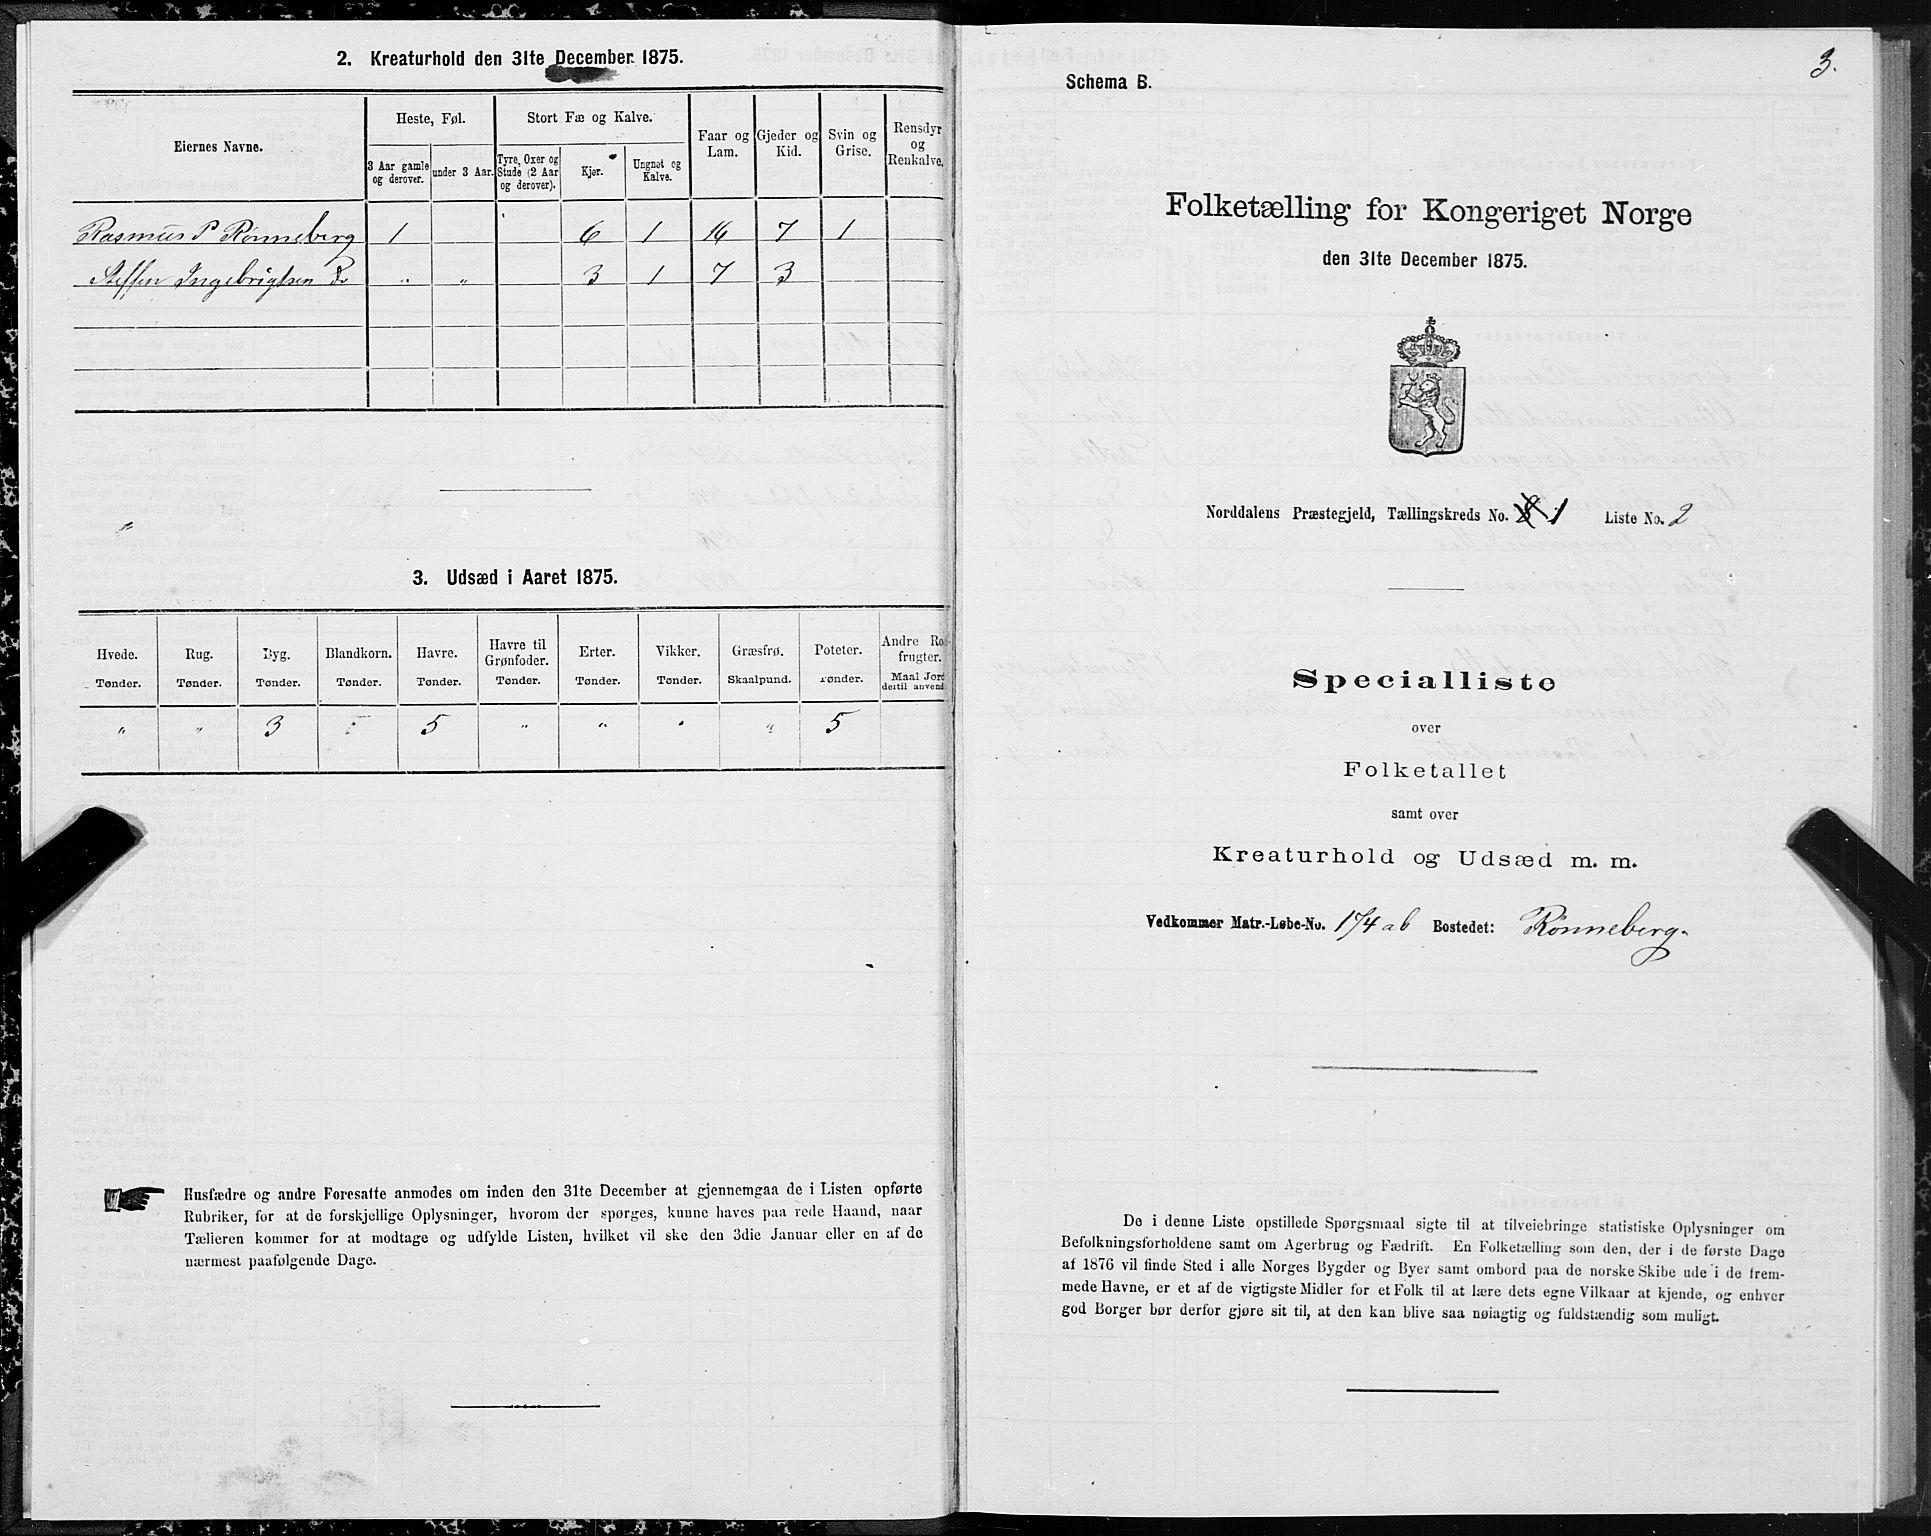 2. Kreaturhold den 31te December 1875.
Eiernes Navne.
Heste, Føl.
Stort Fæ og Kalve.
Faar og Lam.
Gjeder og Kid.
Svin og Grise.
Rensdyr og Renkalve.
3 Aar gamle og derover.
under 3 Aar.
Tyre, Oxer og Stude (2 Aar og derover).
Kjør.
Ungnøt og Kalve.
Rasmus P Rønneberg 1 6 1 16 7 1
Steffen Ingebrigtsen Do " " 3 1 7 3
"
3. Udsæd i Aaret 1875.
Hvede. Rug. Byg. Blandkorn. Havre. Havre til Grønfoder. Erter. Vikker. Græsfrø. Poteter. Andre Ro- frugter.
Tønder. Tønder. Tønder. Tønder. Tønder. Tønder. Tønder. Tønder. Skaalpund. Tønder. Maal Jord dertil anvend
" " 3 " 5 " " " " 5
Husfædre og andre Foresatte anmodes om inden den 31te December at gjennemgaa de i Listen opførte
Rubriker, for at de forskjellige Oplysninger, hvorom der spørges, kunne haves paa rede Haand, naar
Tælleren kommer for at modtage og udfylde Listen, hvilket vil ske den 3die Januar eller en af de
nærmest paafølgende Dage.
3.
Schema B.
Folketælling for Kongeriget Norge
den 31te December 1875.
Norddalens Præstegjeld, Tællingskreds No. 1 Liste No. 2
Specialliste
over
Folketallet
samt over
Kreaturhold og Udsæd m. m.
Vedkommer Matr.-Løbe-No. 174 ab Bostedet: Rønneberg.
De i denne Liste opstillede Spørgsmaal sigte til at tilveiebringe statistiske Oplysninger om
Befolkningsforholdene samt om Agerbrug og Fædrift. En Folketælling som den, der i de første Dage
af 1876 vil finde Sted i alle Norges Bygder og Byer samt ombord paa de norske Skibe ude i de frem-
mede Havne, er et af de vigtigste Midler for et Folk til at lære dets egne Vilkaar at kjende, og enhver
god Borger bør derfor gjøre sit til, at den kan blive saa nøiagtig og fuldstændig som muligt.